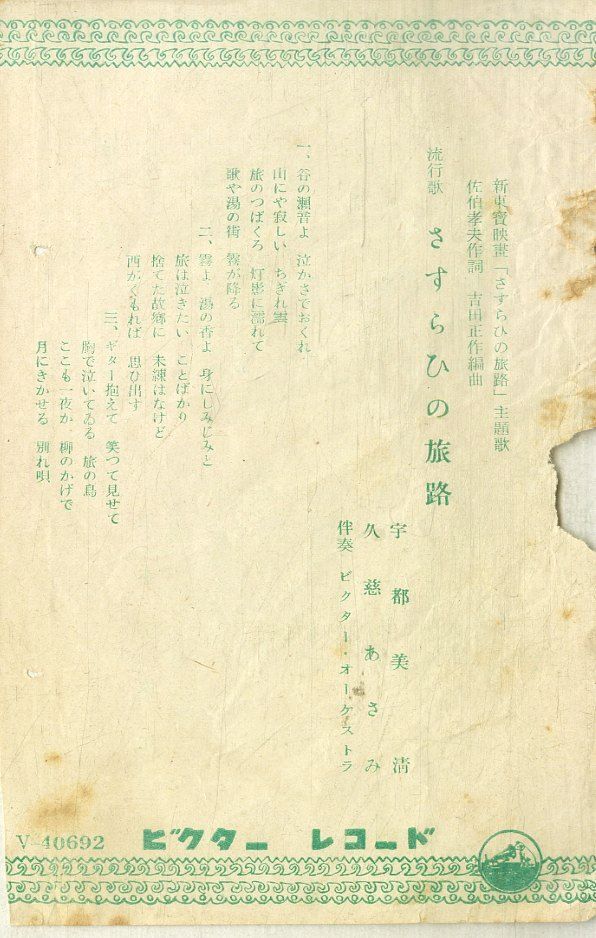 新東寳映畫「さすらひの旅路」主題歌
佐伯孝夫作詞　吉田正作編曲
流行歌　さすらひの旅路
宇都美清
久慈あさみ
伴奏　ビクター・オーケストラ
一、谷の瀬音よ　泣かさでおくれ
山にや寂しい　ちぎれ雲
旅のつばくろ　灯影に濡れて
歌や湯の街　霧が降る
二、雲よ　湯の香よ　身にしみじみと
旅は泣きたい　ことばかり
捨てた故郷に　未練はなけど
西がくもれば　思ひ出す
三、ギター抱えて　笑つて見せて
胸で泣いてゐる　旅の鳥
ここも一夜か　柳のかげで
月にきかせる　別れ唄
V-40692　ビクター　レコード